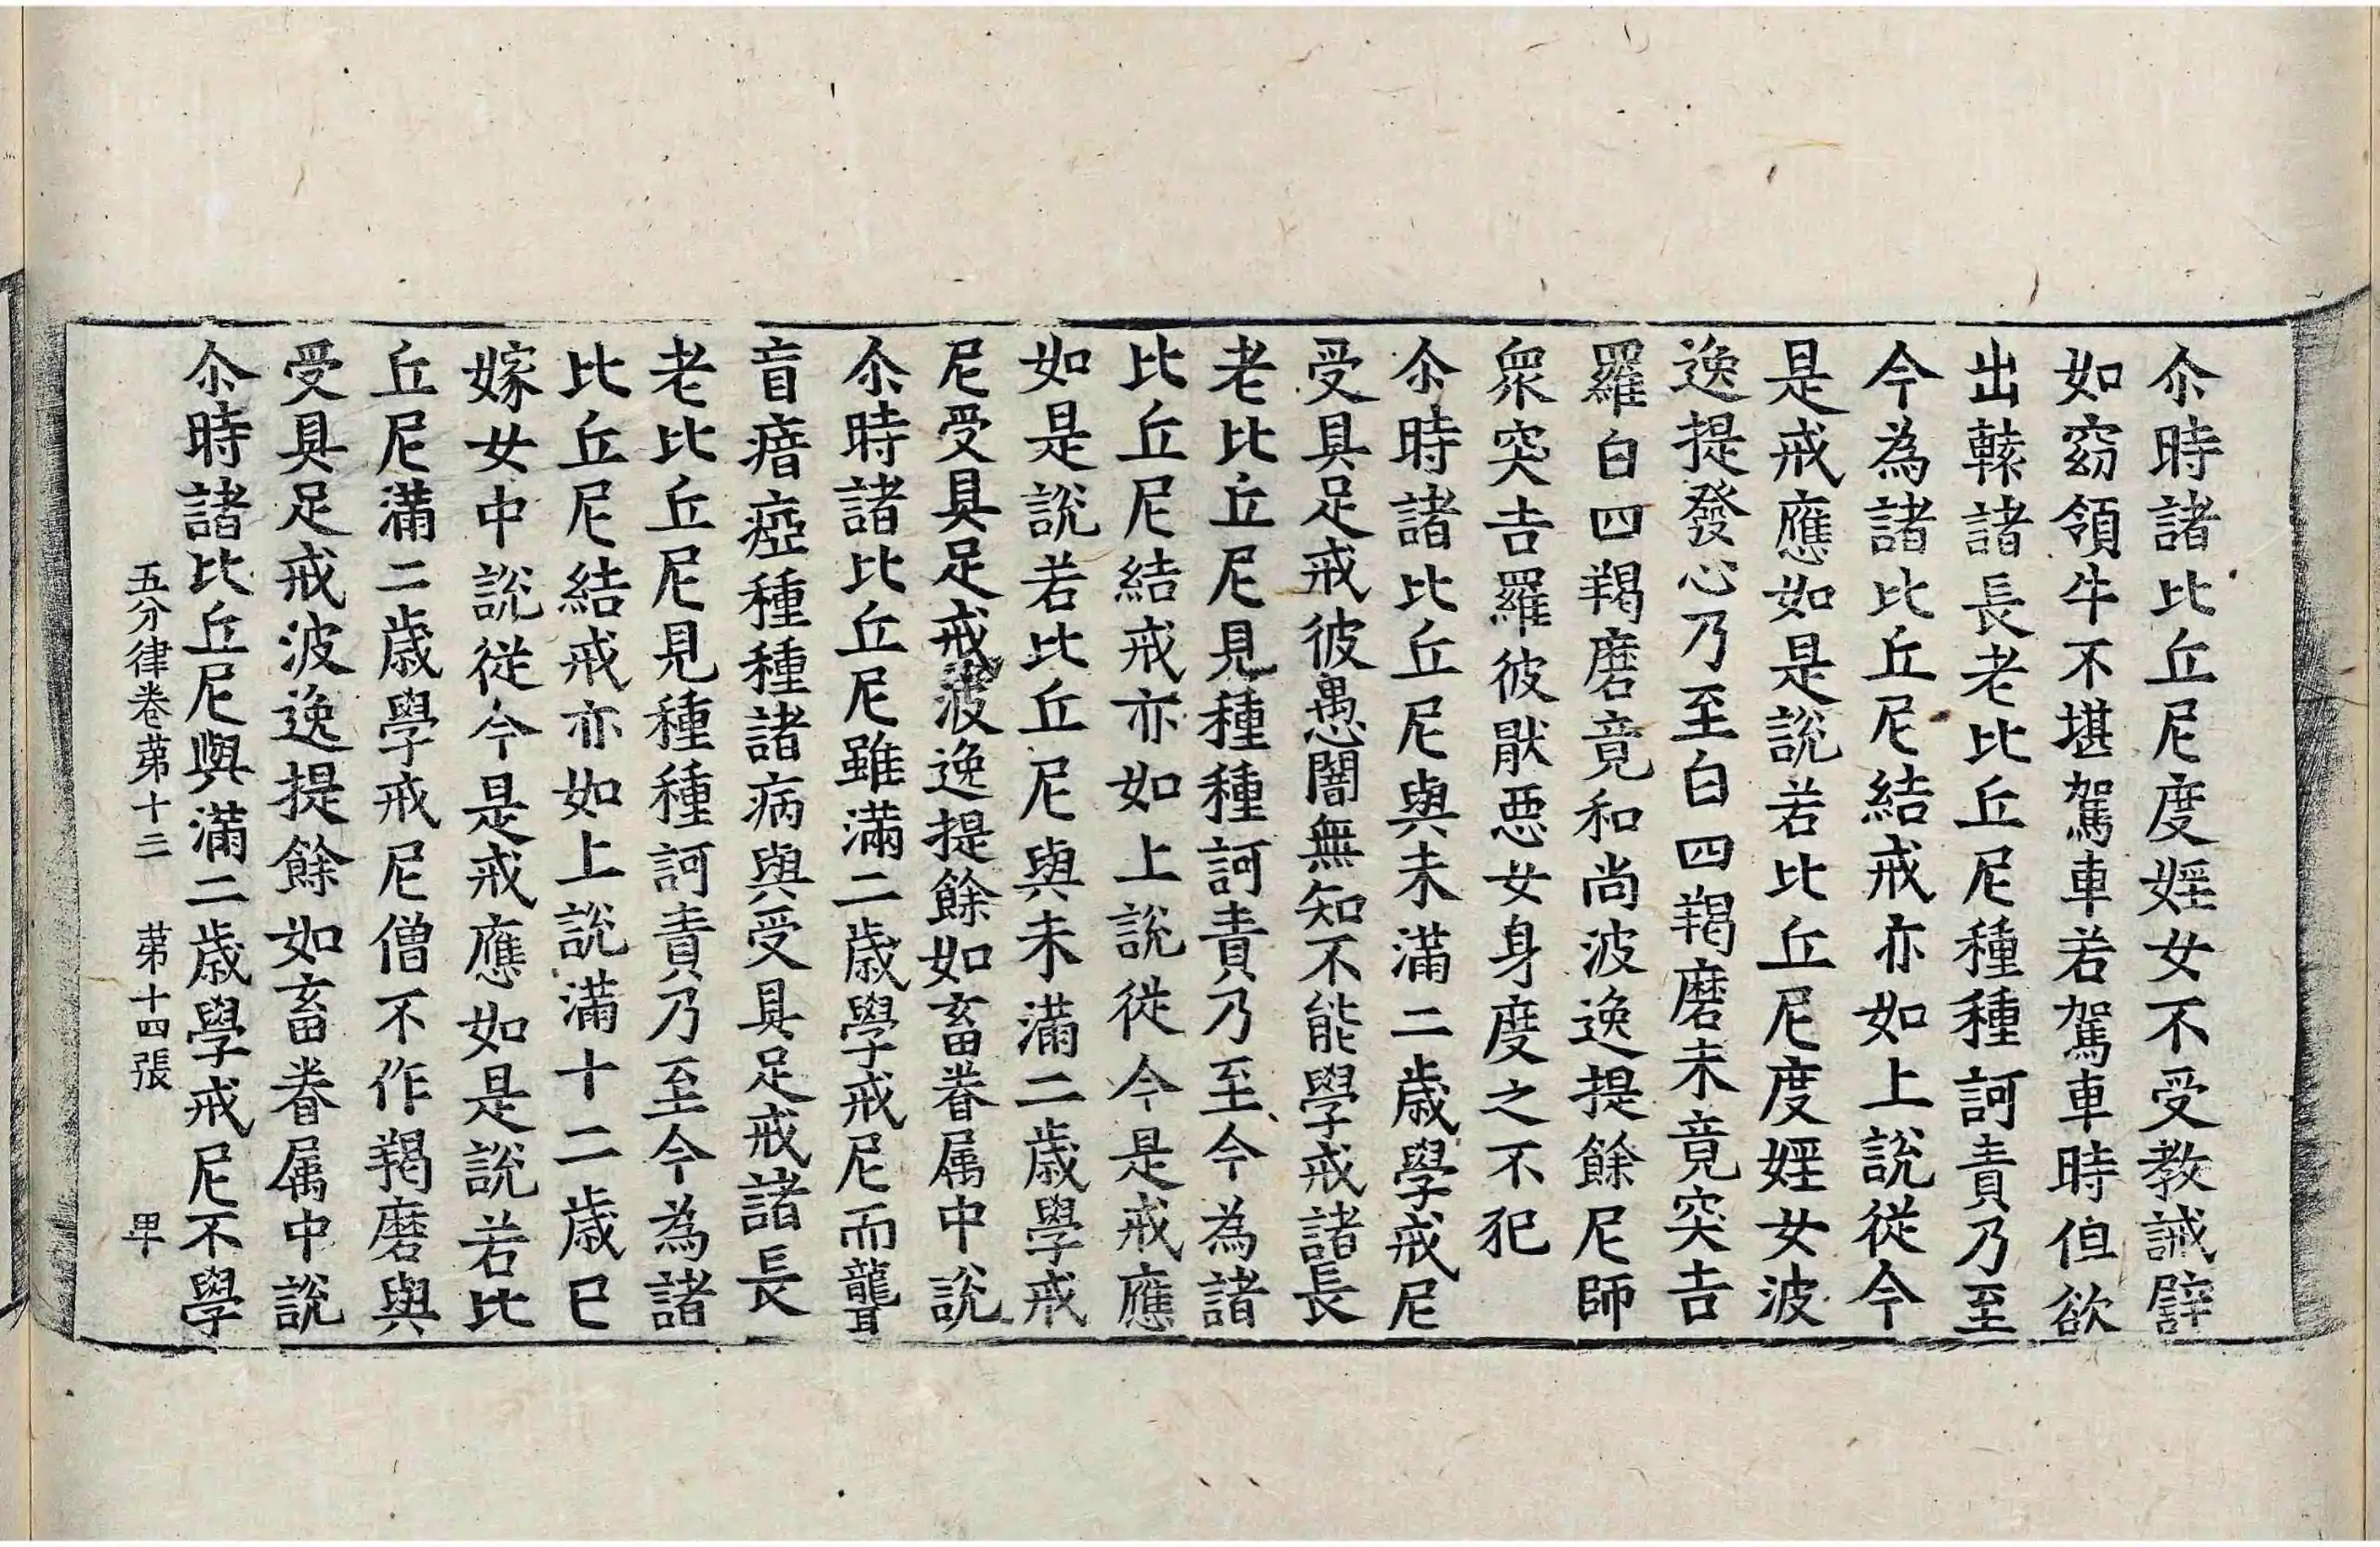 尒時諸比丘尼度婬女不受教誡譬
如窈領牛不堪駕車若駕車時但欲
出轅諸長老比丘尼種種訶責乃至
今為諸比丘尼結戒亦如上說從今
是戒應如是說若比丘尼度婬女波
逸提發心乃至白四羯磨未竟突吉
羅白四羯磨竟和尚波逸提餘尼師
衆突吉羅彼猒惡女身度之不犯
尒時諸比丘尼與未滿二歲學戒尼
受具足戒彼愚闇無知不能學戒諸長
老比丘尼見種種訶責乃至今為諸
比丘尼結戒亦如上說從今是戒應
如是說若比丘尼與未滿二歲學戒
尼受具足戒波逸提餘如畜眷属中說
尒時諸比丘尼雖滿二歲學戒尼而聾
盲瘖瘂種種諸病與受具足戒諸長
老比丘尼見種種訶責乃至今為諸
比丘尼結戒亦如上說滿十二歲已
嫁女中說從今是戒應如是說若比
丘尼滿二歲學戒尼僧不作羯磨與
受具足戒波逸提餘如畜眷属中說
尒時諸比丘尼與滿二歲學戒尼不學
五分律卷苐十三 苐十四張